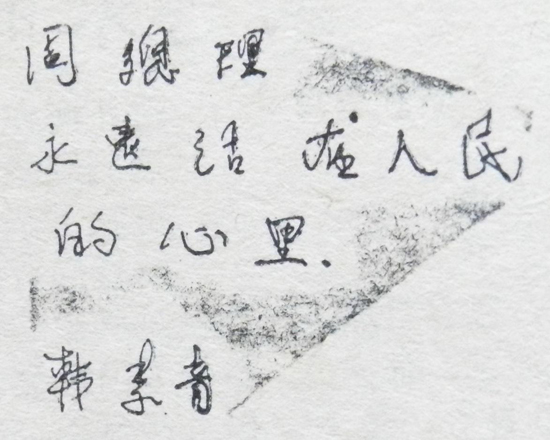 周總理
永遠活在人民
的心里.
韩素音